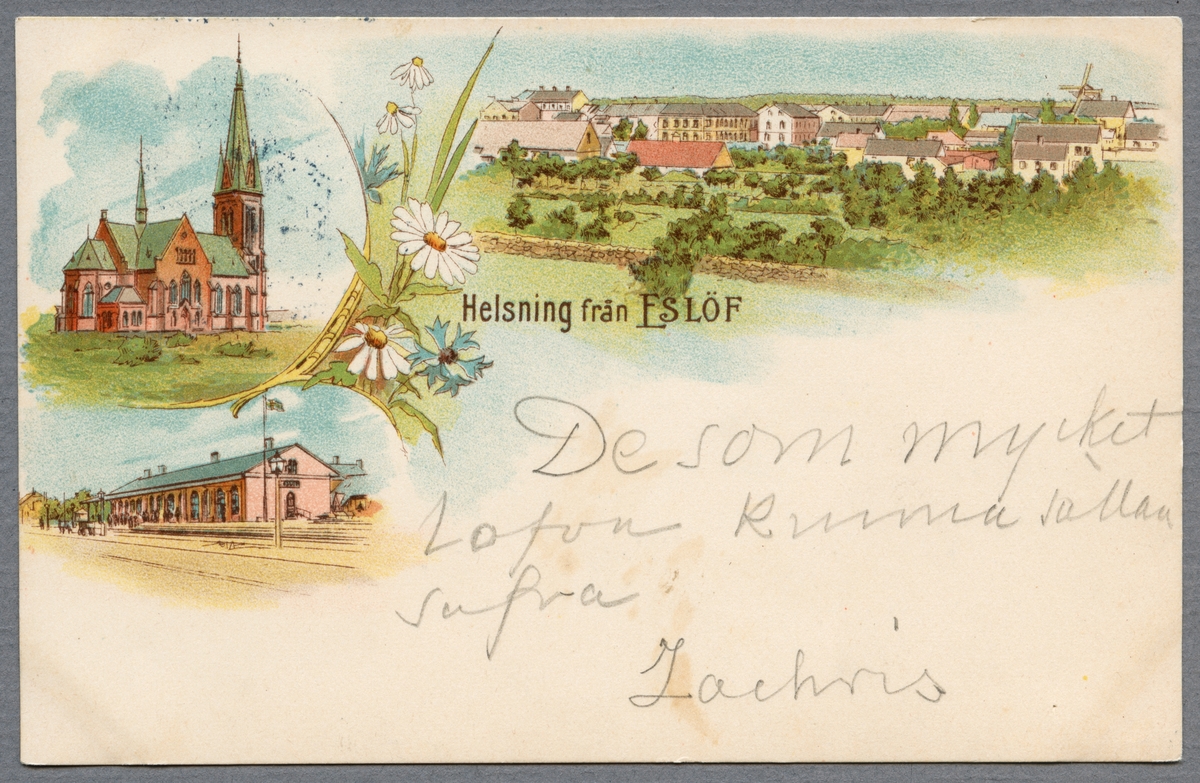 Helsning från ESLÖF
De som mycket
lofva kunna sällan
Zachris